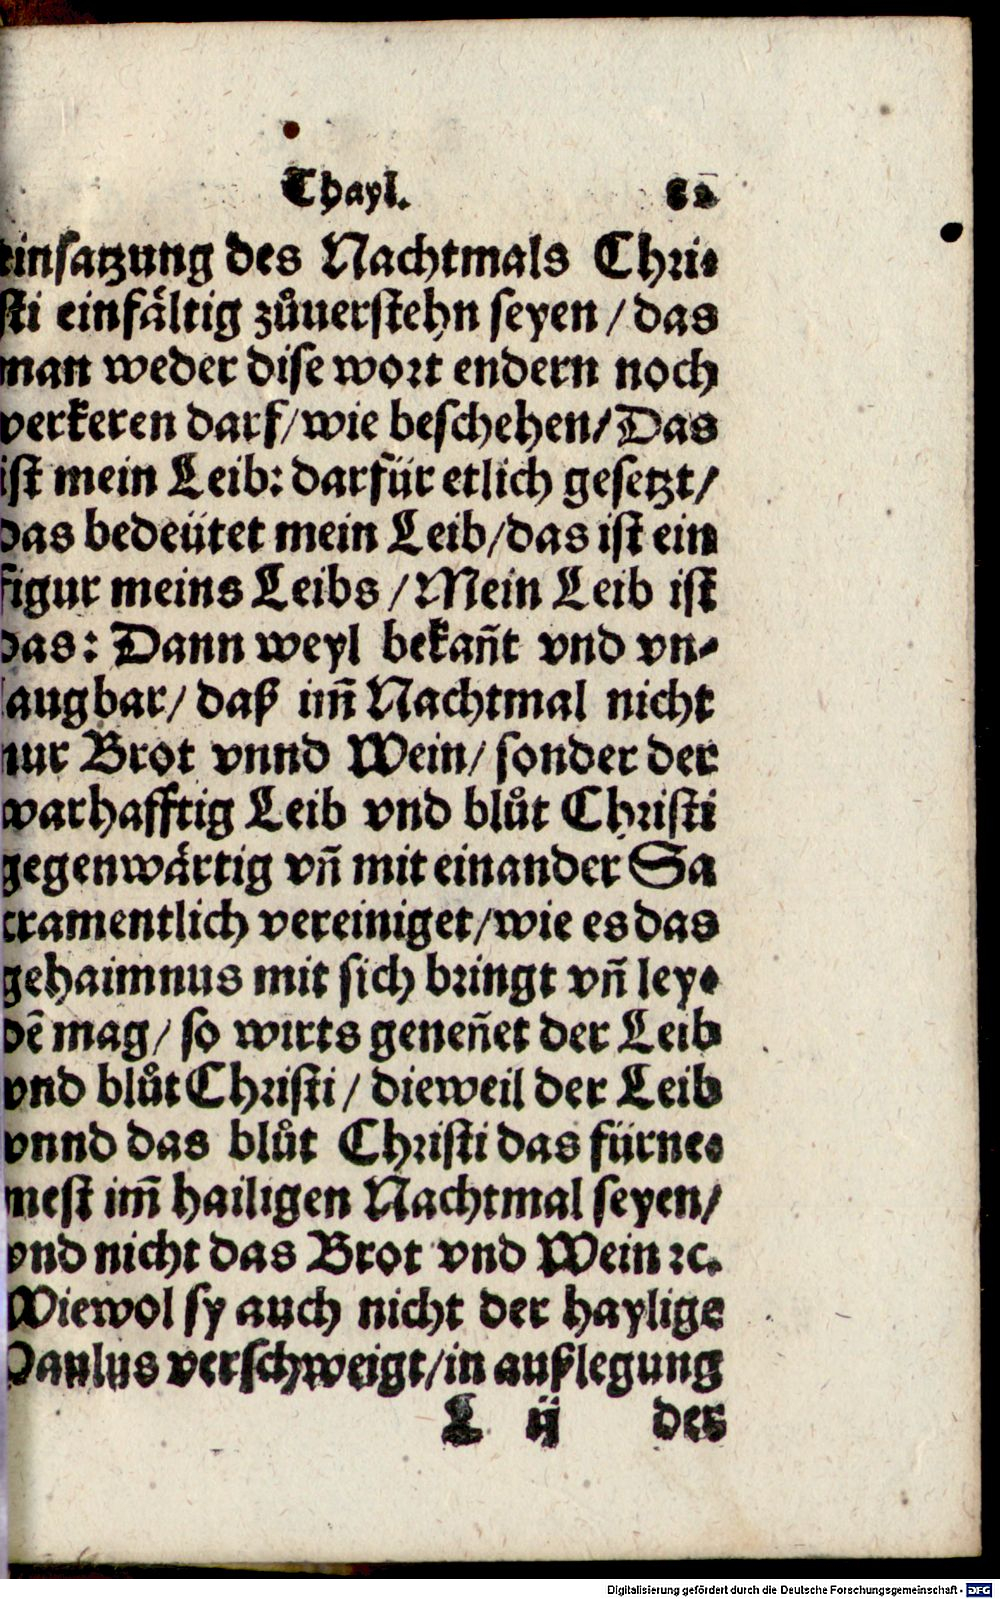 Thayl. 82
einsatzung des Nachtmals Chri⸗
sti einfältig zůuerstehn seyen / das
man weder dise wort endern noch
verkeren darf / wie beschehen / Das
ist mein Leib: darfür etlich gesetzt /
das bedeütet mein Leib / das ist ein
figur meins Leibs / Mein Leib ist
das: Dann weyl bekañt vnd vn⸗
laugbar / daß im̃ Nachtmal nicht
nur Brot vnnd Wein / sonder der
warhafftig Leib vnd blůt Christi
gegenwärtig vñ mit einander Sa
cramentlich vereiniget / wie es das
gehaimnus mit sich bringt vñ ley⸗
dẽ mag / so wirts geneñet der Leib
vnd blůt Christi / dieweil der Leib
vnnd das blůt Christi das fürne⸗
mest im̃ hailigen Nachtmal seyen /
vnd nicht das Brot vnd Wein ꝛc.
Wiewol sy auch nicht der haylige
Paulus verschweigt / in außlegung
L ij des
Digitalisierung gefördert durch die Deutsche Forschungsgemeinschaft - DFG